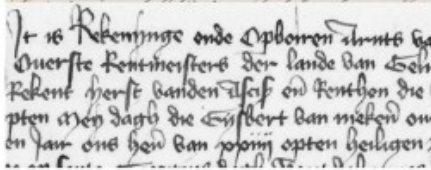 It is Rekenynge ende Opboiren Arnts va
Ouerste Rentmeisters der lande van Gel
Rekent yerst vanden Assiss en Renthen die
pten mey dagh die Gysbert van mekeren on
en Jair ons hern van xxiiij opten heiligen